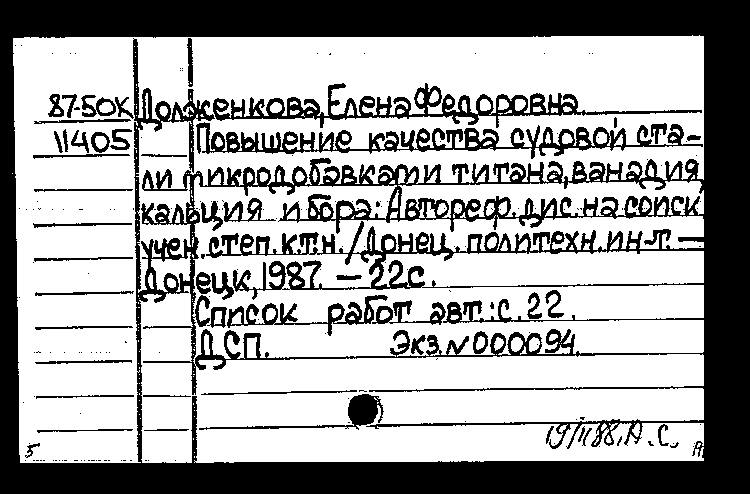 87-50к Долженкова, Елена Федоровна.
11405 Повышение качества судовой ста-
ли микродобавками титана, ванадия,
кальция и бора: Автореф. дис. на соиск
учен. степ. к.т.н. / Донец. политехн. ин-т. —
Донецк, 1987. — 22 с.
Список работ авт.: с. 22.
ДСП. Экз. N 000094.
А. С.
5